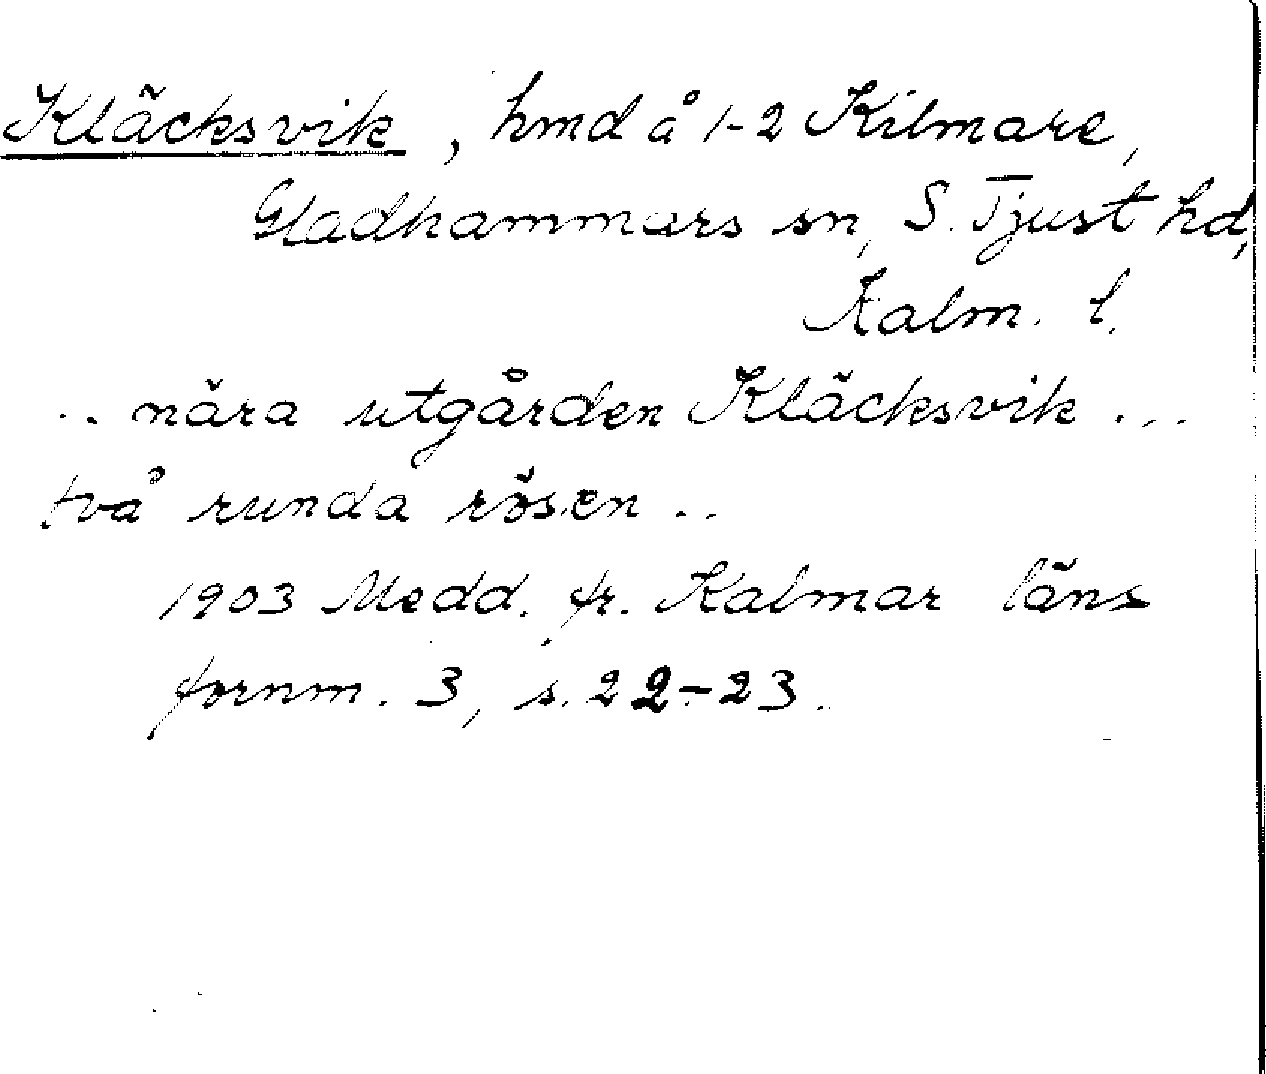 Kläcksvik, hmd å 1-2 Kilmare,
Gladhammars sn, S. Tjust hd,
Kalm. l.
.. nära utgården Kläcksvik ...
två runda rösen ..
1903 Medd. fr. Kalmar läns
fornm. 3, s. 22-23.